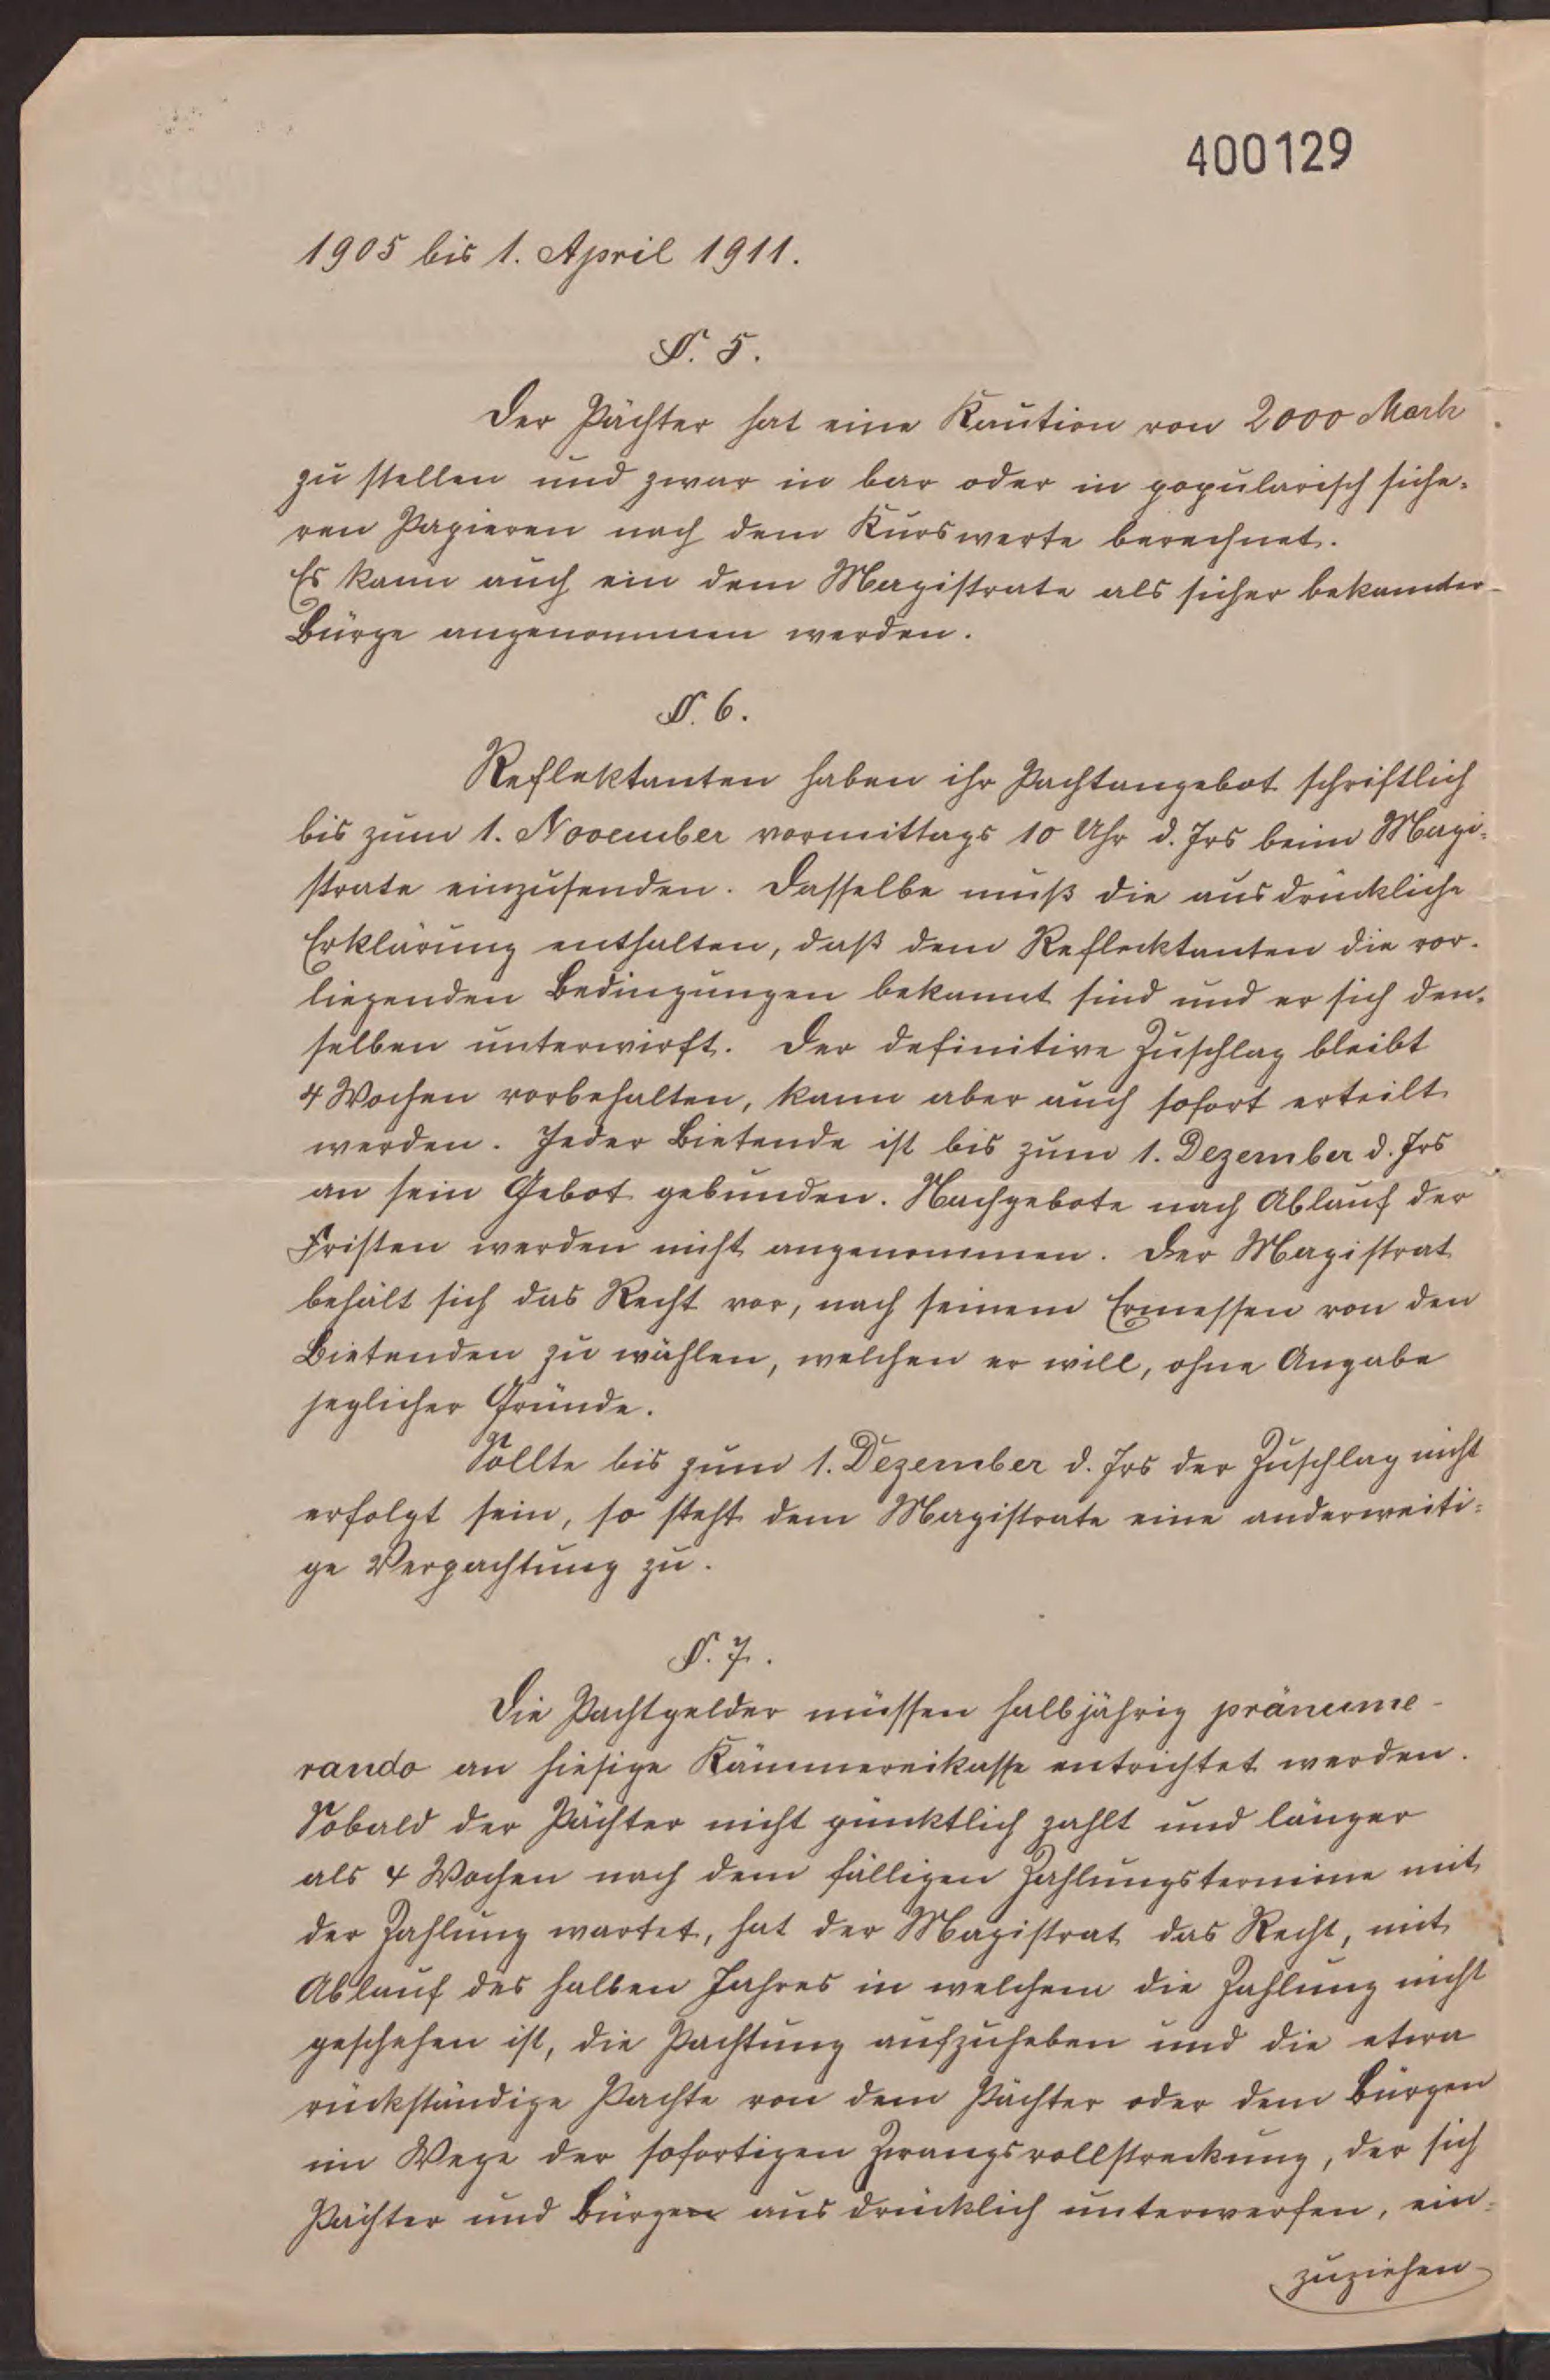 400129
1905 bis 1. April 1911.
§. 5.
Der Pächter hat eine Kaution von 2000 Mark
zu stellen und zwar in bar oder in popularisch siche-
ren Papieren nach dem Kurswerte berechnet.
Es kann auch ein dem Magistrate als sicher bekannter
Bürge angenommen werden.
§. 6.
Reflektanten haben ihr Pachtangebot schriftlich
bis zum 1. November vormittags 10 Uhr d. Jrs beim Magi-
strate einzusenden. Dasselbe muß die ausdrückliche
Erklärung enthalten, daß dem Reflecktanten die vor-
liegenden Bedingungen bekannt sind und er sich den-
selben unterwirft. Der definitive Zuschlag bleibt
4 Wochen vorbehalten, kann aber auch sofort erteilt
werden. Jeder Bietende ist bis zum 1. Dezember d. Jrs
an sein Gebot gebunden. Nachgebote nach Ablauf der
Fristen werden nicht angenommen. Der Magistrat
behält sich das Recht vor, nach seinem Ermessen von den
Bietenden zu wählen, welchen er will, ohne Angabe
jeglicher Gründe.
Sollte bis zum 1. Dezember d. Jrs der Zuschlag nicht
erfolgt sein, so steht dem Magistrate eine anderweiti-
ge Verpachtung zu.
§. 7.
Die Pachtgelder müssen halbjährig pränume-
rando an hiesige Kämmereikasse entrichtet werden.
Sobald der Pächter nicht pünktlich zahlt und länger
als 4 Wochen nach dem fälligen Zahlungstermine mit
der Zahlung wartet, hat der Magistrat das Recht, mit
Ablauf des halben Jahres in welchem die Zahlung nicht
geschehen ist, die Pachtung aufzuheben und die etwa
rückständige Pachte von dem Pächter oder dem Bürgen
im Wege der sofortigen Zwangsvollstreckung, der sich
Pächter und Bürgen ausdrücklich unterwerfen, ein-
zuziehen